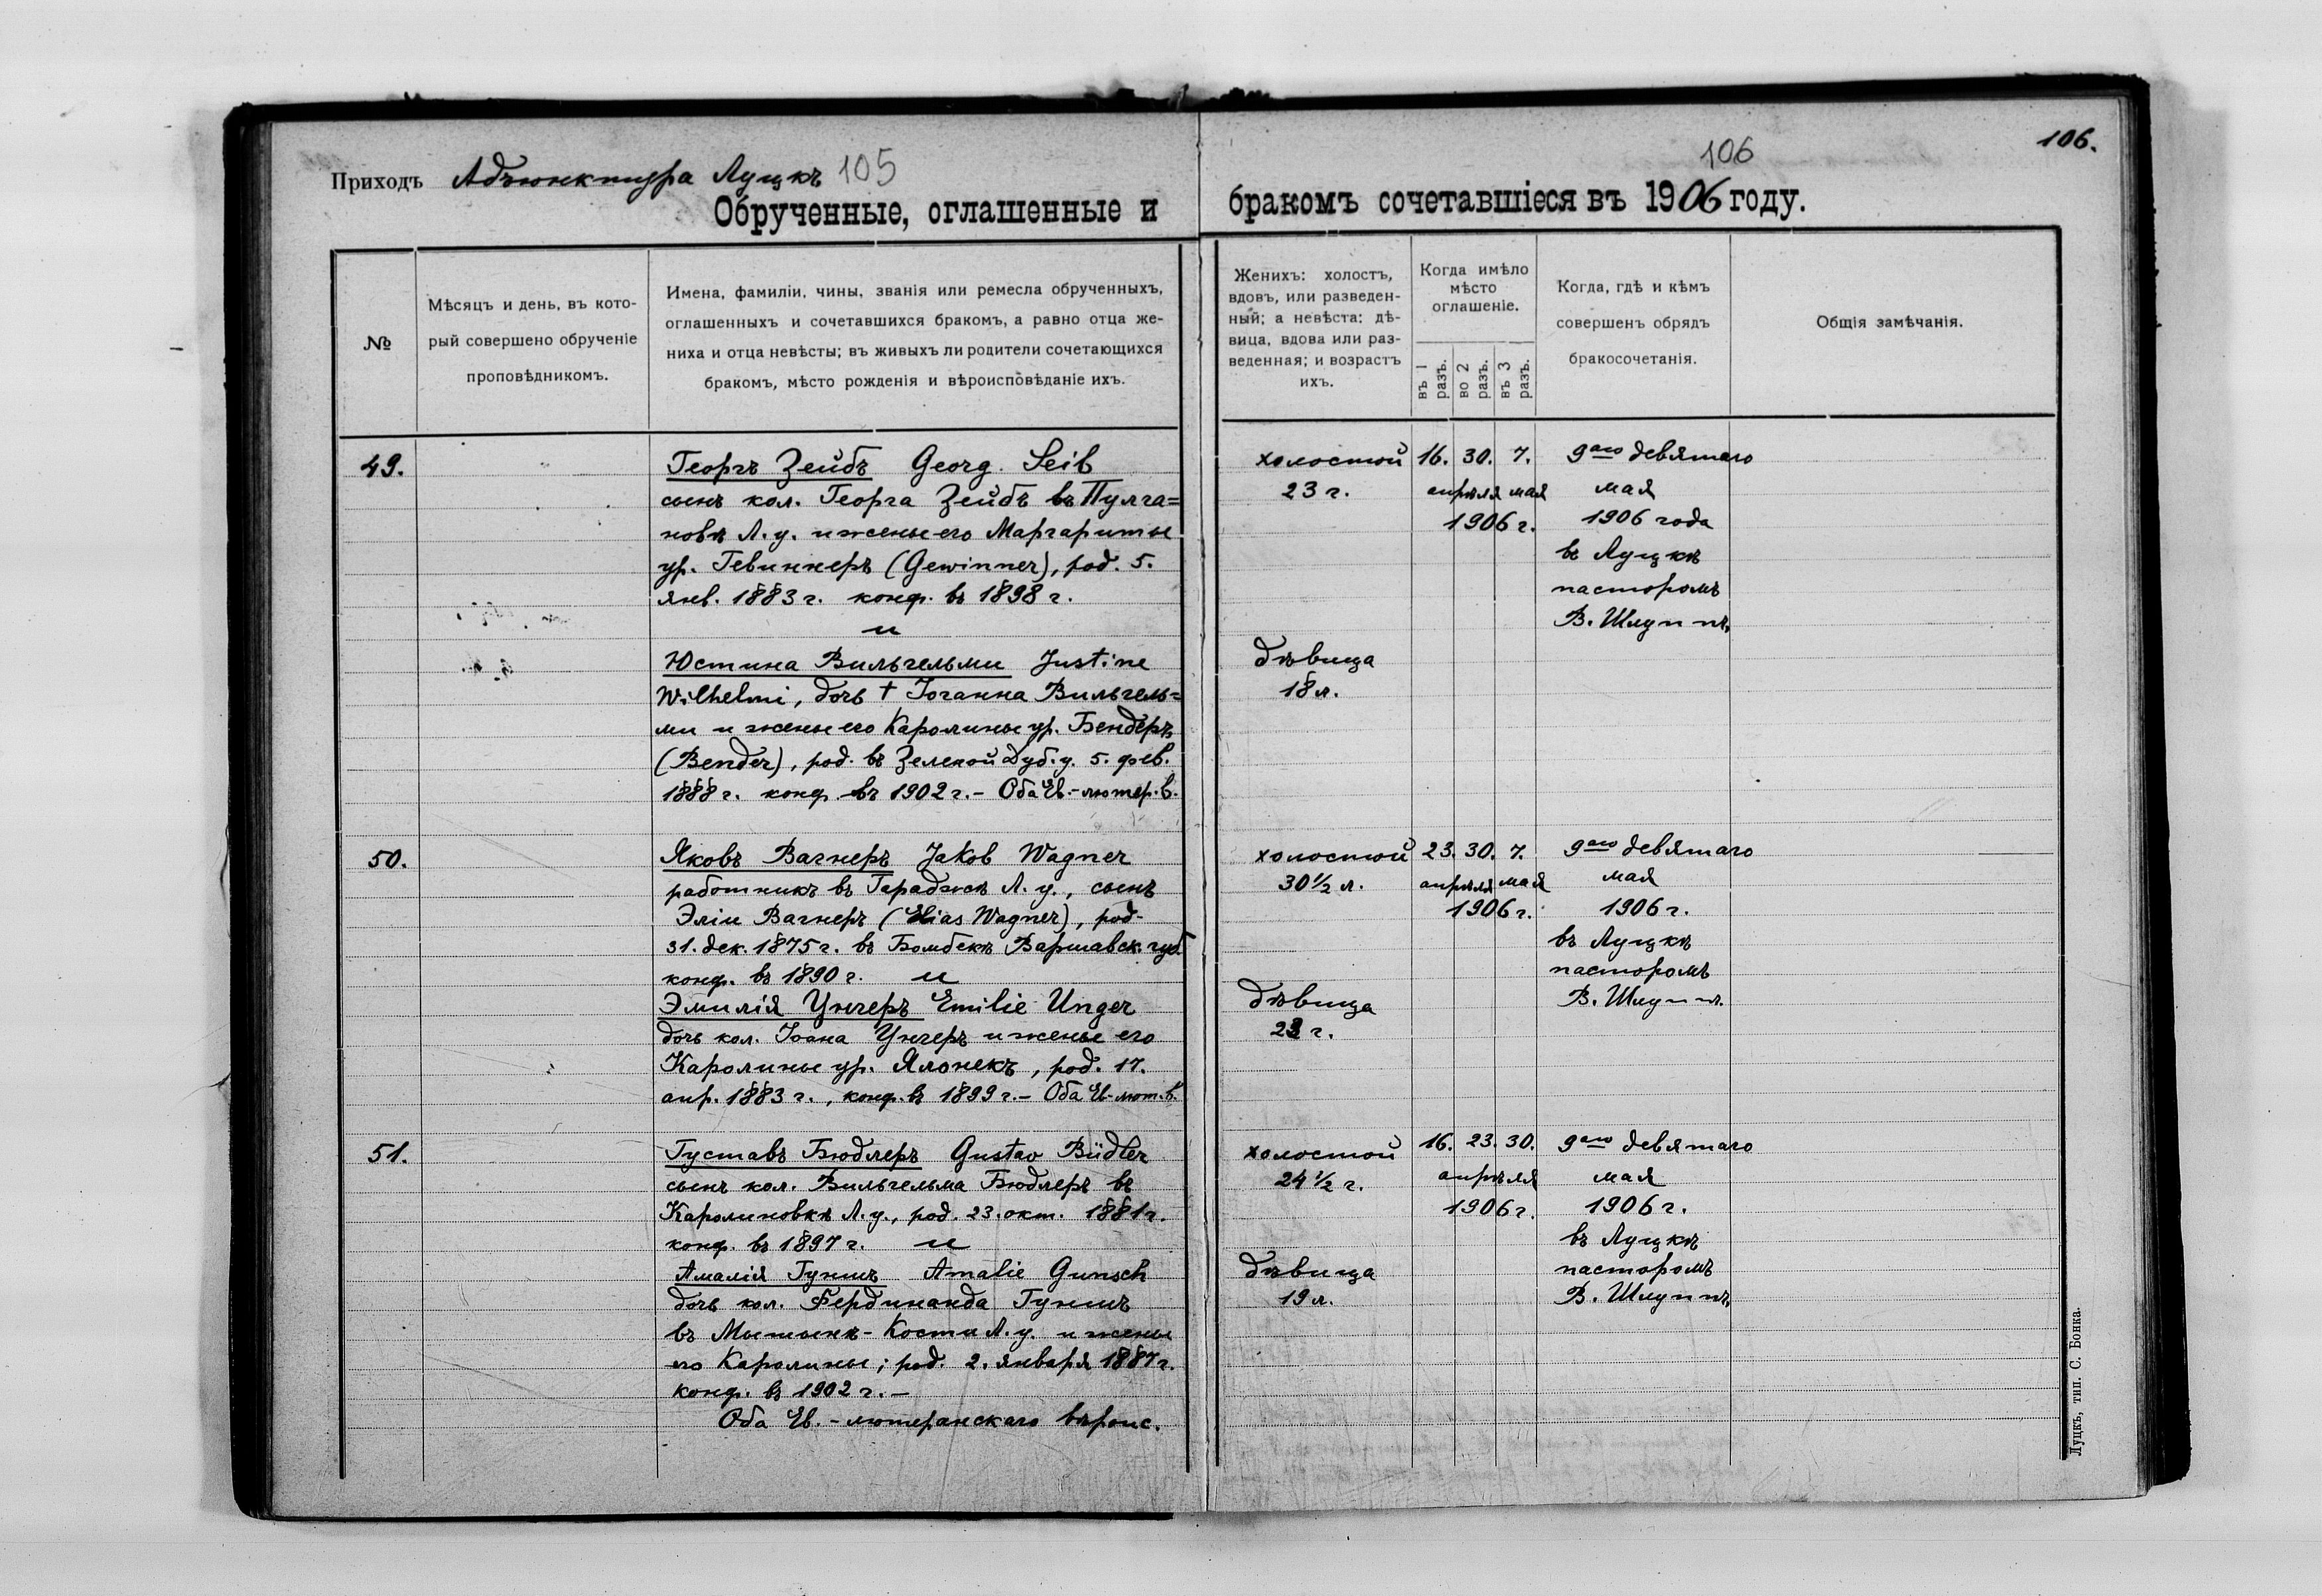 Приходъ Адъюнктура Луцкъ 105
Обрученные, оглашенные и
№
Мѣсяцъ и день, въ кото-
рый совершено обрученіе
проповѣдникомъ.
Имена, фамиліи, чины, званія или ремесла обрученныхъ,
оглашенныхъ и сочетавшихся бракомъ, а равно отца же-
ниха и отца невѣсты; въ живыхъ ли родители сочетающихся
бракомъ, мѣсто рожденія и вѣроисповѣданіе ихъ.
49.
Георгъ Зейбъ Georg. Seib
сынъ кол. Георга Зейбъ въ Пулга=
новѣ Л. у. и жены его Маргариты
ур. Гевиннеръ (Gewinner), род. 5.
янв. 1883 г. конф. въ 1898 г.
и
Юстина Вильгельми Justine
Wilhelmi, дочь † Іоганна Вильгель=
ми и жены его Каролины ур. Бендеръ
(Bender), род. въ Зеленой Дуб. у. 5. фев.
1888 г. конф. въ 1902 г. – Оба Ев.-лютер. в.
50.
Яковъ Вагнеръ Jakob Wagner
работникъ въ Гараджѣ Л. у., сынъ
Эліи Вагнеръ (Elias Wagner), род.
31. дек. 1875 г. въ Бомбекѣ Варшавск. губ.
конф. въ 1890 г. и
Эмилія Унгеръ Emilie Unger
дочь кол. Іоана Унгеръ и жены его
Каролины ур. Ялонекъ, род. 17.
апр. 1883 г., конф. въ 1899 г. – Оба Ев-лют. в.
51.
Густавъ Бюдлеръ Gustav Büdler
сынъ кол. Вильгельма Бюдлеръ въ
Каролиновкѣ Л. у., род. 23. окт. 1881 г.
конф. въ 1897 г. и
Амалія Гуншъ Amalie Gunsch
дочь кол. Фердинанда Гуншъ
въ Костю Л. у. и жены
его Каролины; род. 2. января 1887 г.
конф. въ 1902 г. –
Оба Ев.-лютеранскаго вѣроис.
106
106.
бракомъ сочетавшіеся въ 1906 году.
Женихъ: холостъ,
вдовъ, или разведен-
ный; а невѣста: дѣ-
вица, вдова или раз-
веденная; и возрастъ
ихъ.
Когда имѣло
мѣсто
оглашеніе.
въ 1 разъ.
во 2 разъ.
въ 3 разъ.
Когда, гдѣ и кѣмъ
совершенъ обрядъ
бракосочетанія.
Общія замѣчанія.
холостой 16. 30. 7. 9аго девятаго
23 г. апрѣля мая мая
1906 г. 1906 года
въ Луцкѣ
пасторомъ
В. Шлуппъ.
дѣвица
18 л.
холостой 23. 30. 7. 9аго девятаго
30½ л. апрѣля мая мая
1906 г. 1906 г.
въ Луцкѣ
пасторомъ
дѣвица В. Шлуппъ.
23 г.
холостой 16. 23. 30. 9аго девятаго
24½ г. апрѣля мая
1906 г. 1906 г.
въ Луцкѣ
дѣвица пасторомъ
19 л. В. Шлуппъ.
Луцкъ, тип. С. Бонка.